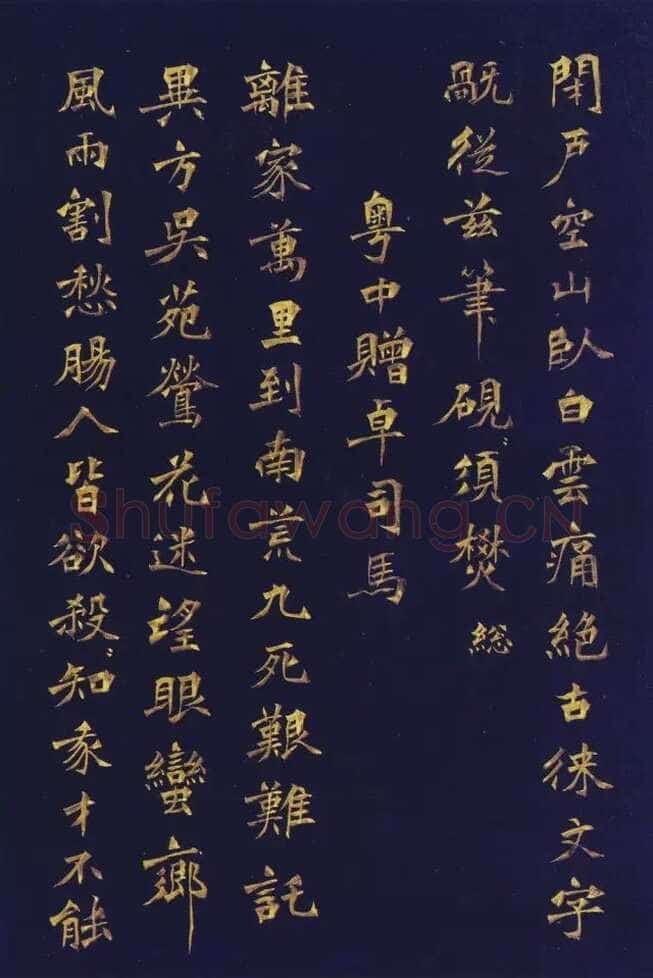 閇戶空山臥白雲痛絕古徠文字
旤從茲筆硯須焚緫
粵中贈卓司馬
離家萬里到南荒九死艱難託
異方吳苑鶯花迷望眼蠻鄉
風雨割愁腸人皆欲殺知才不能
Shufawang.CN